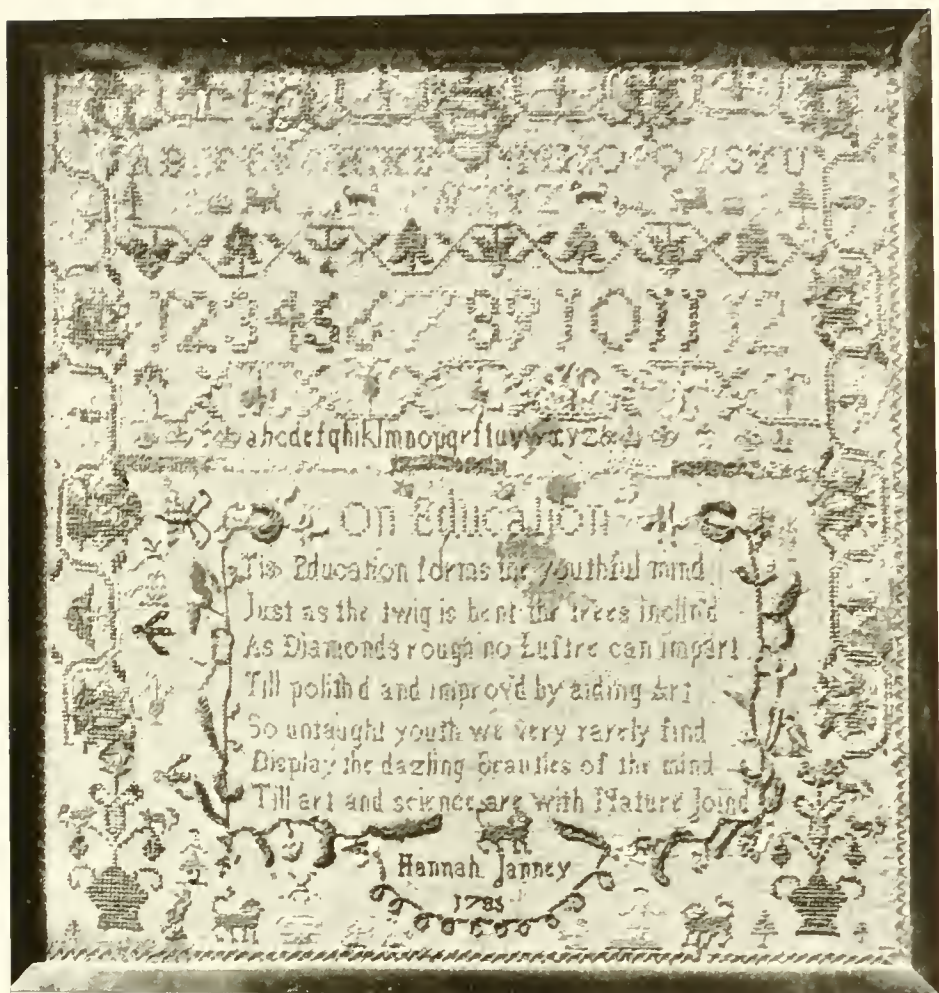 O P Q R S T U
1 2 3 4 5 6 7 8 9 10 11 12
abcdefghiklmnopqrſtuvwxyz&
On Education
Tis Education forms the youthful mind
Just as the twig is bent the trees Inclin'd
As Diamonds rough no Luſtre can impart
Till poliſh'd and improv'd by aiding Art
So untaught youth we very rarely find
Display the dazling Beauties of the mind
Till art and science are with Nature Joind
Hannah Janney
1785